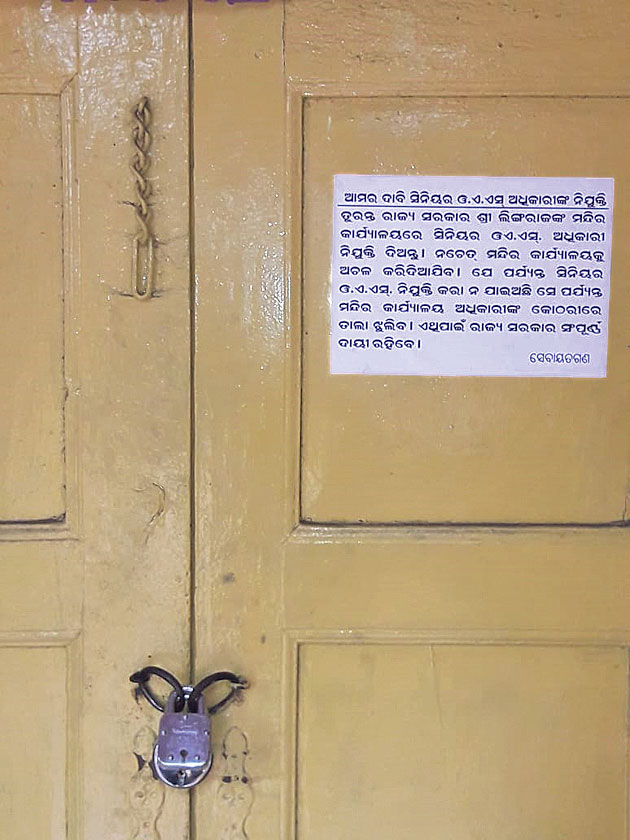 ଆମର ଦାବି ସିନିୟର ଓ.ଏ.ଏସ୍ ଅଧିକାରୀଙ୍କ ନିଯୁକ୍ତି
ତୁରନ୍ତ ରାଜ୍ୟ ସରକାର ଶ୍ରୀ ଲିଙ୍ଗରାଜଙ୍କ ମନ୍ଦିର
କାର୍ଯ୍ୟାଳୟରେ ସିନିୟର ଓଏ.ଏସ୍. ଅଧିକାରୀ
ନିଯୁକ୍ତି ଦିଅନ୍ତୁ। ନଚେତ୍ ମନ୍ଦିର କାର୍ଯ୍ୟାଳୟକୁ
ଅଚଳ କରିଦିଆଯିବ। ଯେ ପର୍ଯ୍ୟନ୍ତ ସିନିୟର
ଓ.ଏ.ଏସ୍. ନିଯୁକ୍ତି କରା ନ ଯାଇଅଛି ସେ ପର୍ଯ୍ୟନ୍ତ
ମନ୍ଦିର କାର୍ଯ୍ୟାଳୟ ଅଧିକାରୀଙ୍କ କୋଠରୀରେ
ତାଲା ଝୁଲିବ। ଏଥିପାଇଁ ରାଜ୍ୟ ସରକାର ସଂପୂର୍ଣ୍ଣ
ଦାୟୀ ରହିବେ।
ସେବାୟତଗଣ